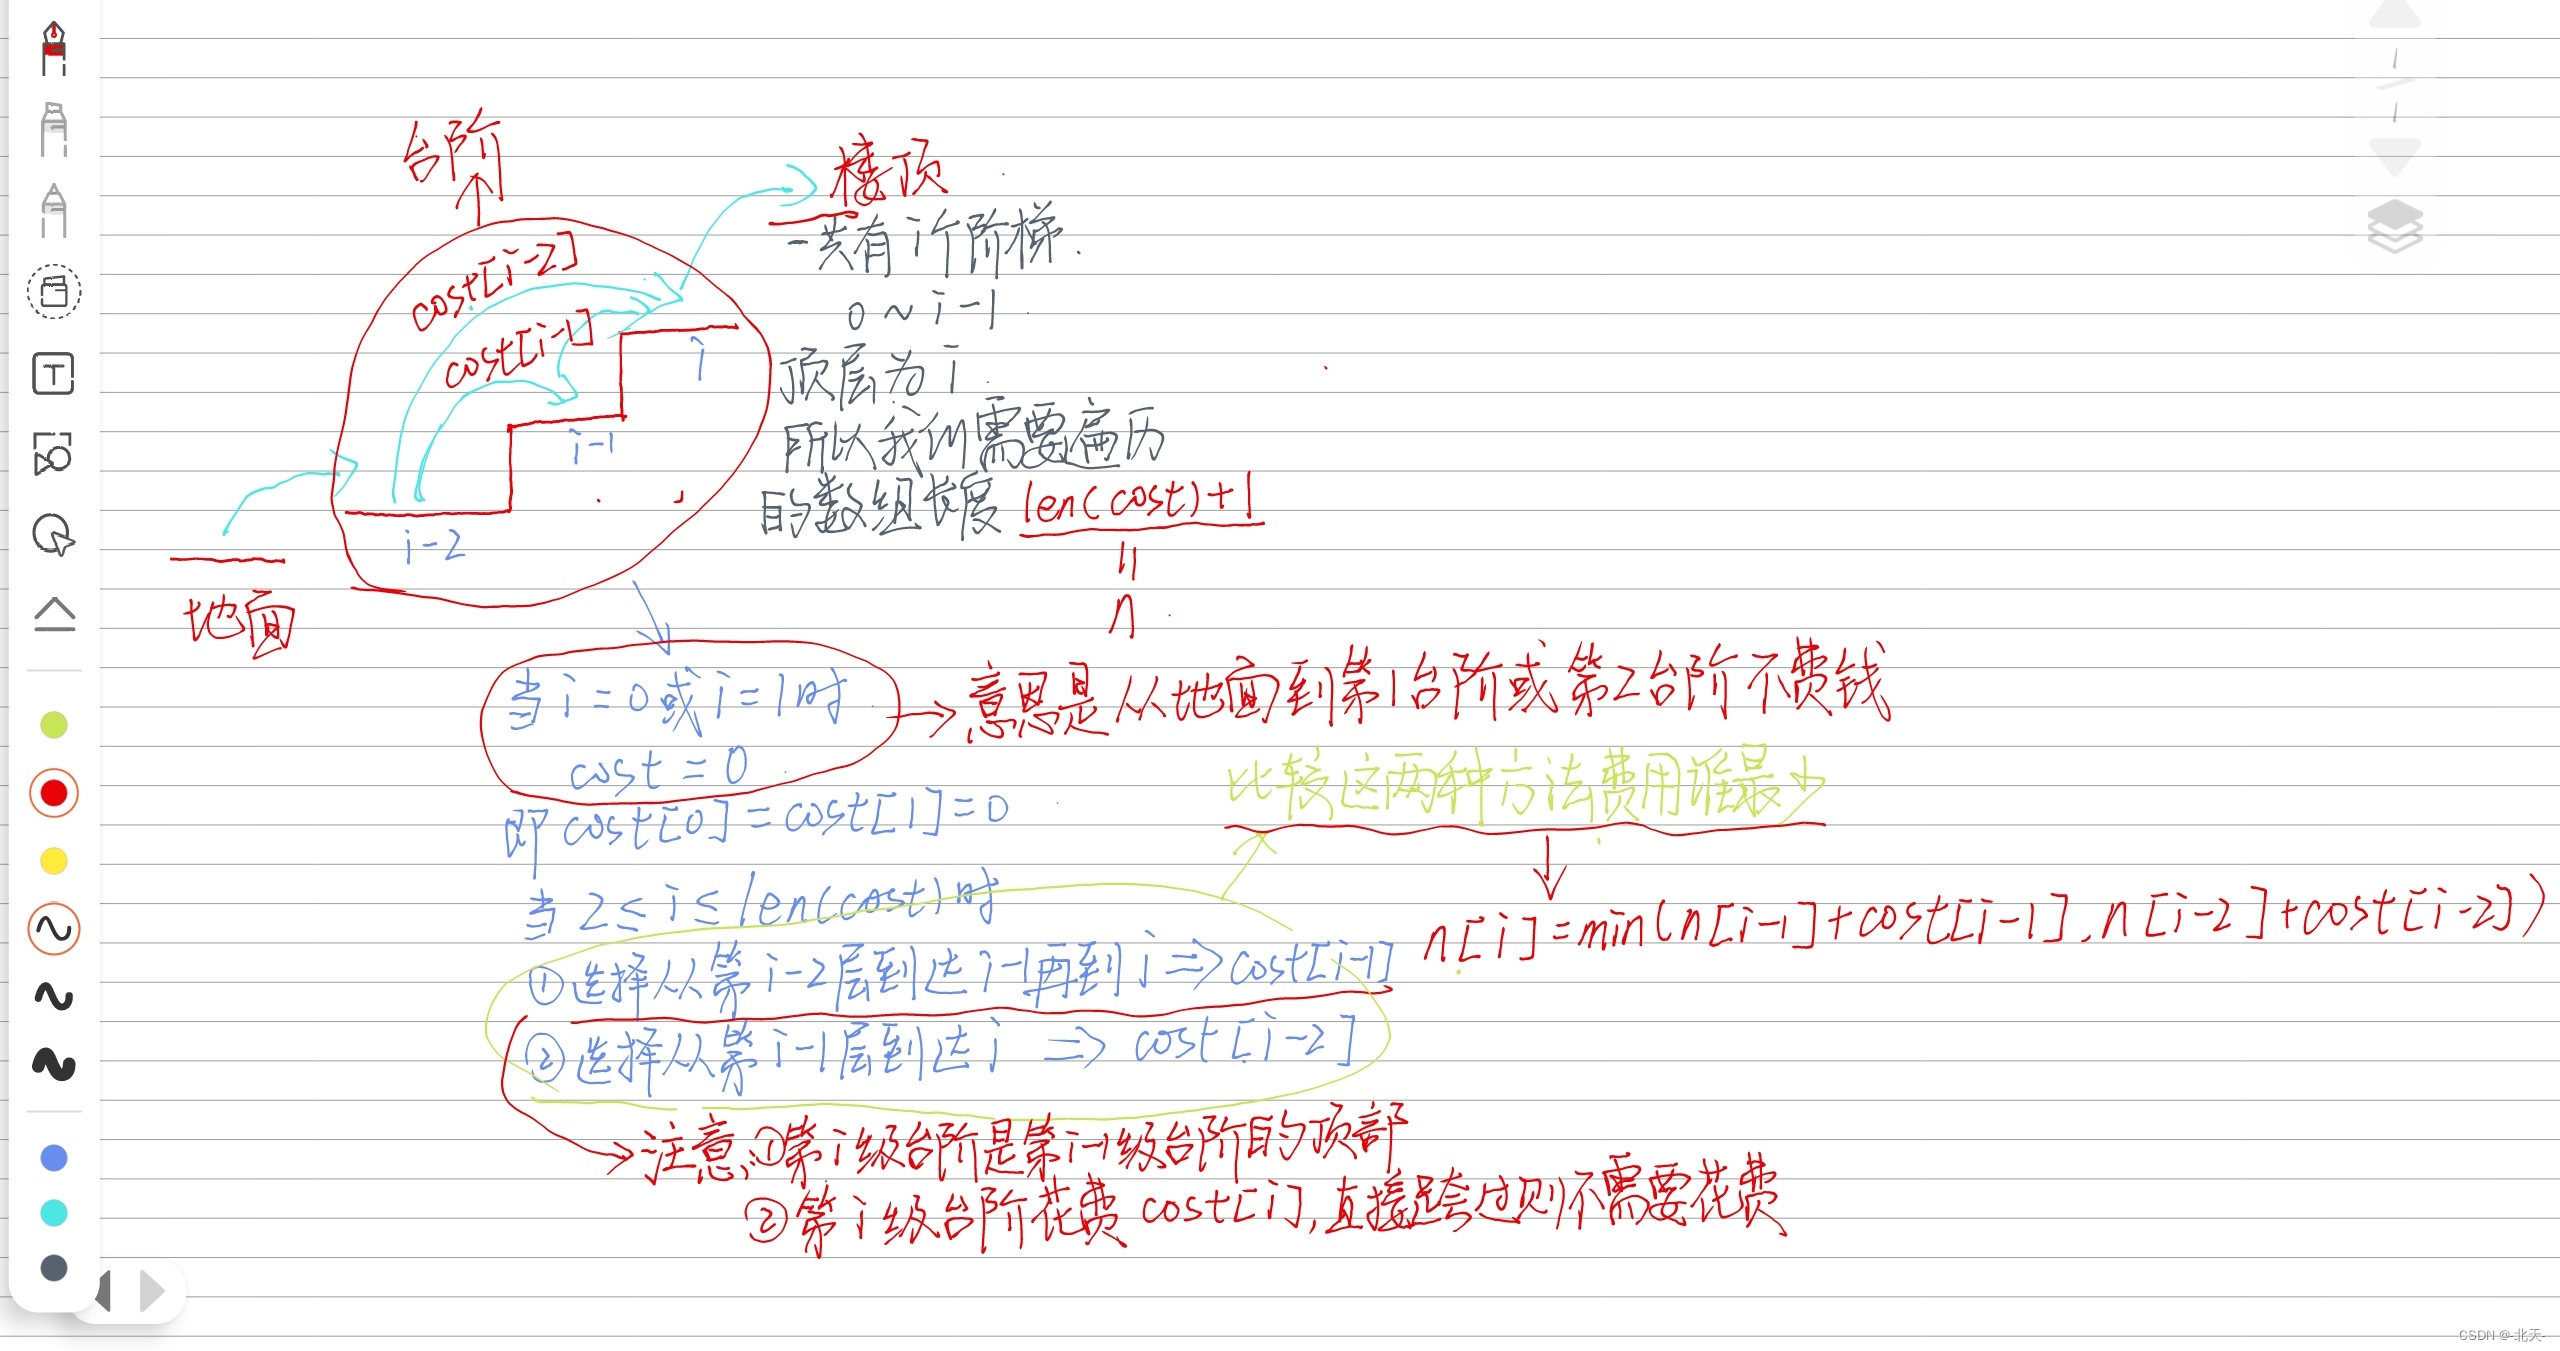 台阶
楼顶
一共有i个阶梯.
0~i-1
顶层为i
所以我们需要遍历
的数组长度 len(cost)+1
=
n
cost[i-2]
cost[i-1]
i
i-1
i-2
地面
当i=0或i=1时
cost=0
意思是从地面到第1台阶或第2台阶不费钱
即cost[0]=cost[1]=0
比较这两种方法费用谁最少
当2≤i≤len(cost)时
n[i]=min(n[i-1]+cost[i-1],n[i-2]+cost[i-2])
①选择从第i-2层到达i-1再到i=>cost[i-1]
②选择从第i-1层到达i => cost[i-2]
注意:①第i级台阶是第i-1级台阶的顶部
②第i级台阶花费cost[i],直接跨过则不需要花费
T
CSDN @-北天-